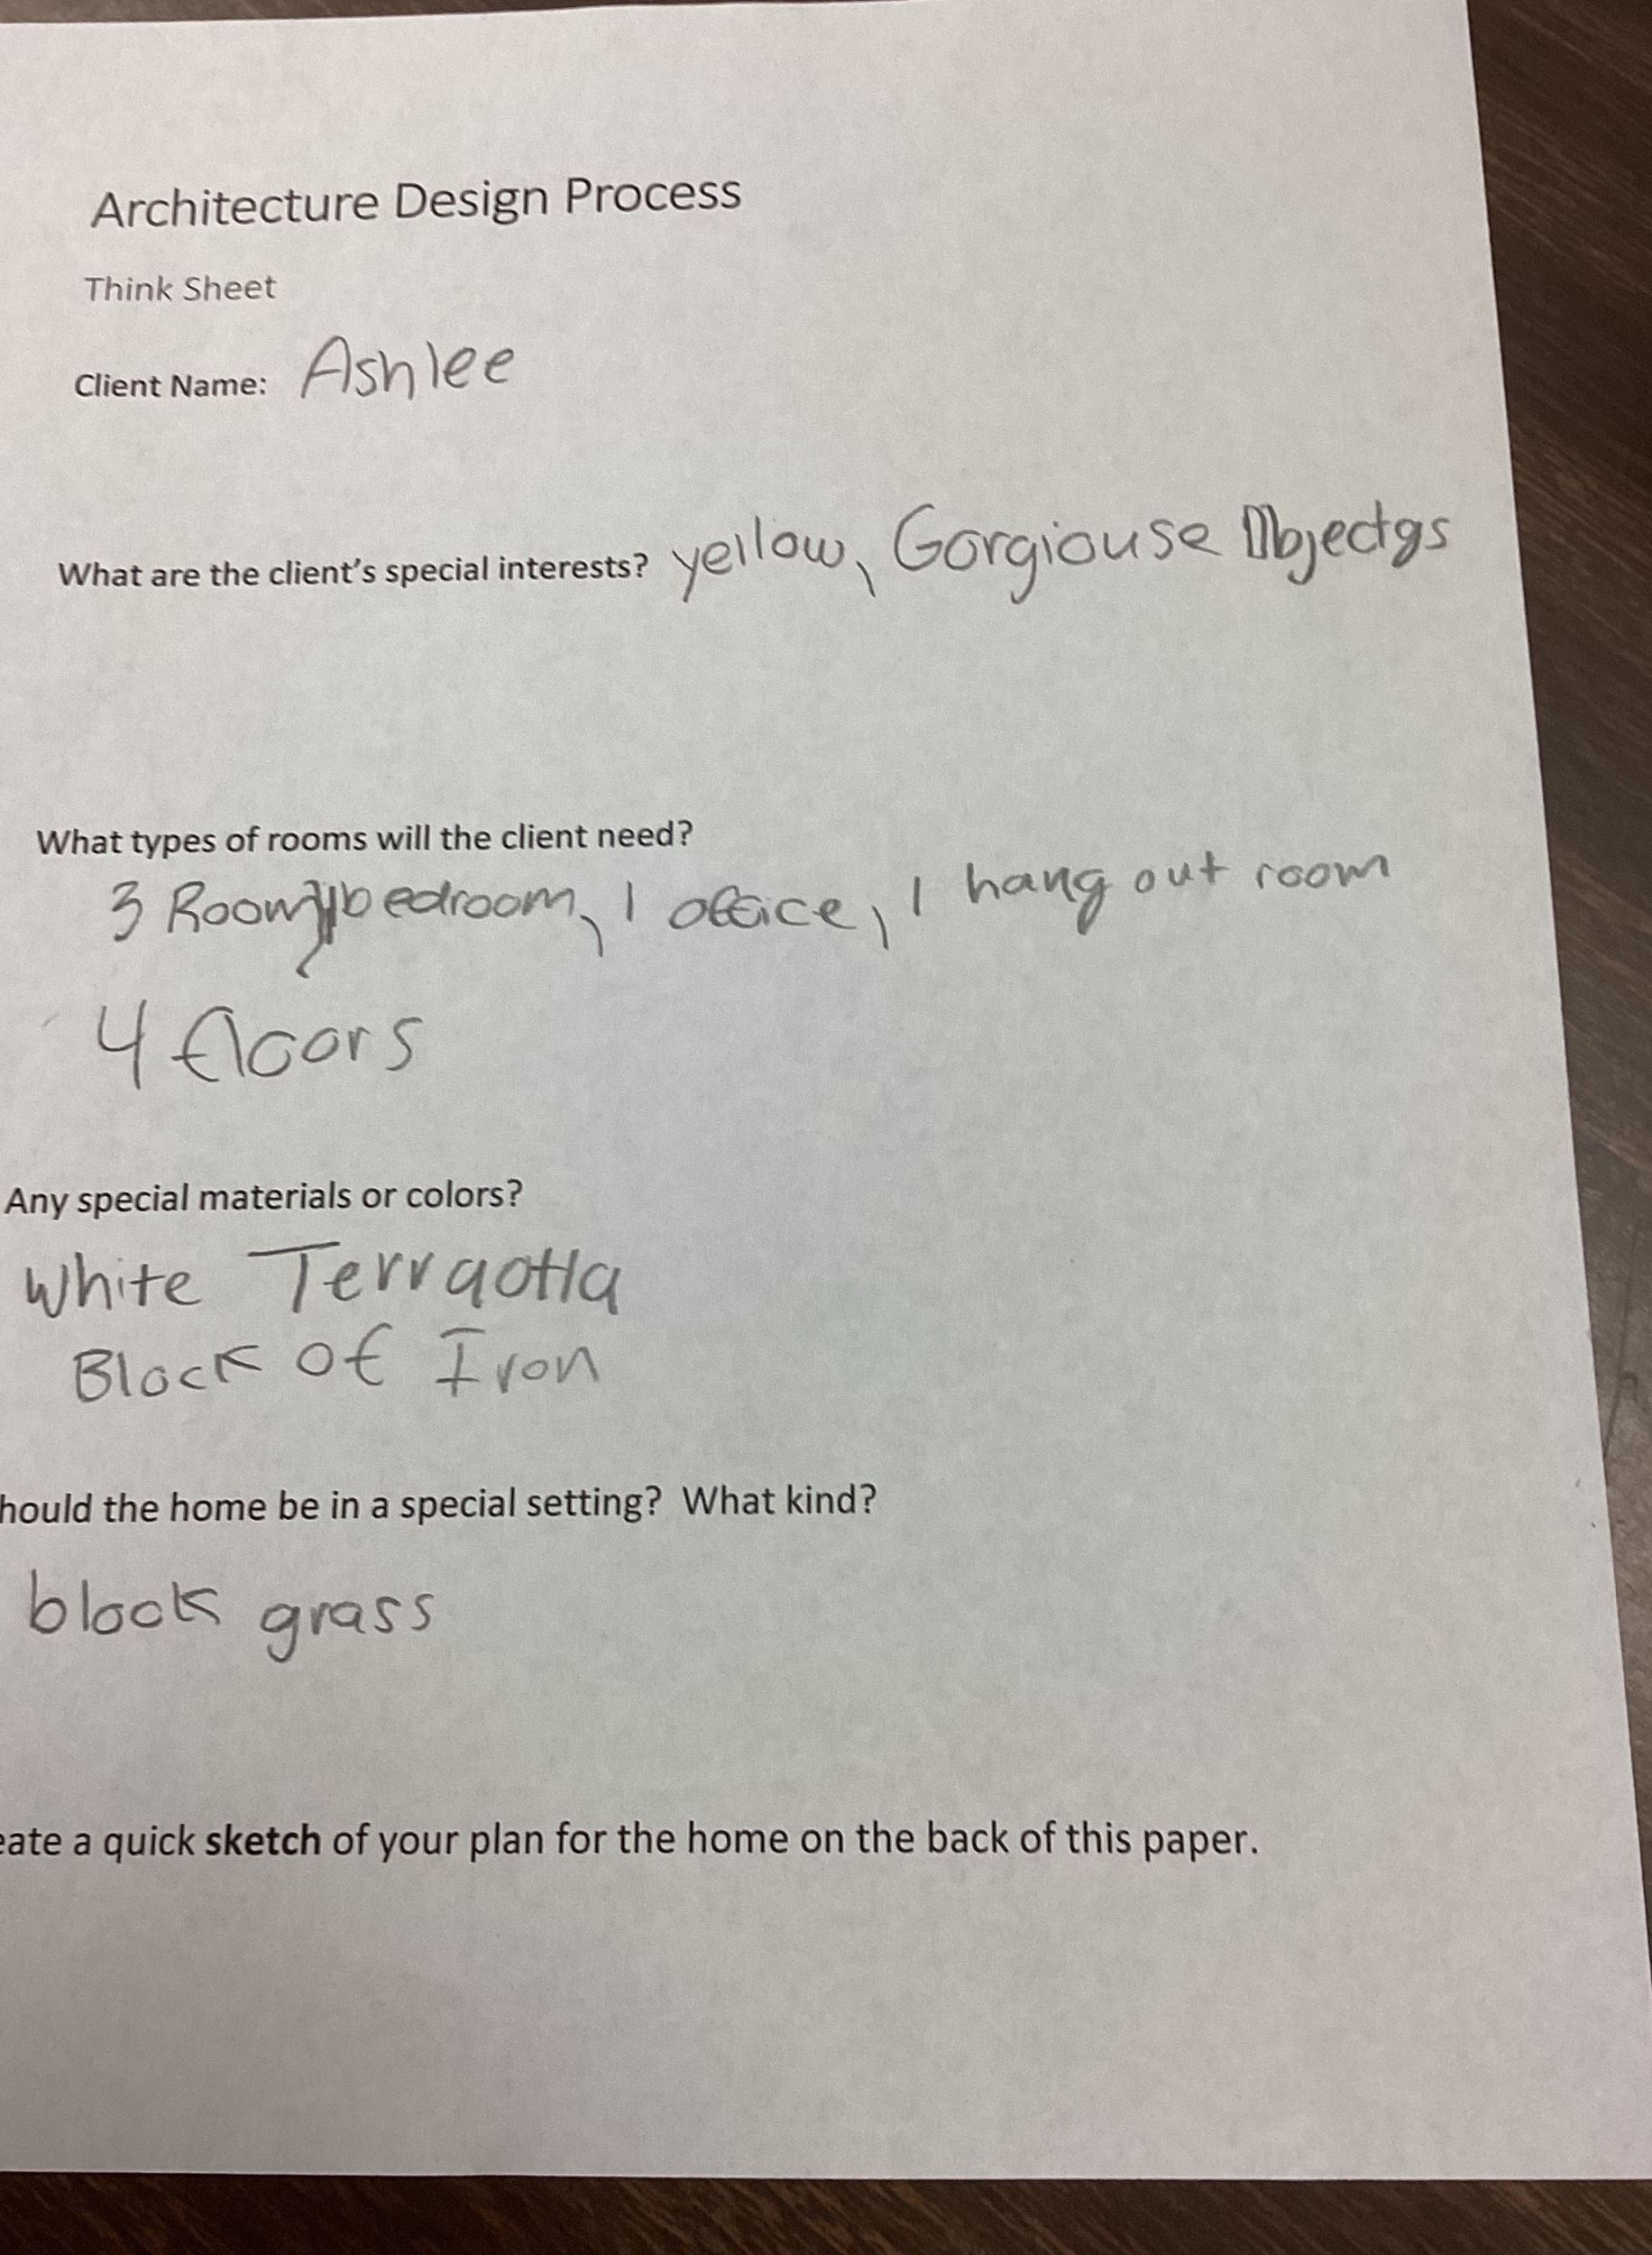 Architecture Design Process
Think Sheet
Client Name: Ashlee
What are the client's special interests? yellow, Gorgiouse Objectgs
What types of rooms will the client need?
3 Room, 1 bedroom, 1 office, 1 hang out room
4 floors
Any special materials or colors?
White Terraotta
Block of Iron
hould the home be in a special setting? What kind?
block grass
eate a quick sketch of your plan for the home on the back of this paper.